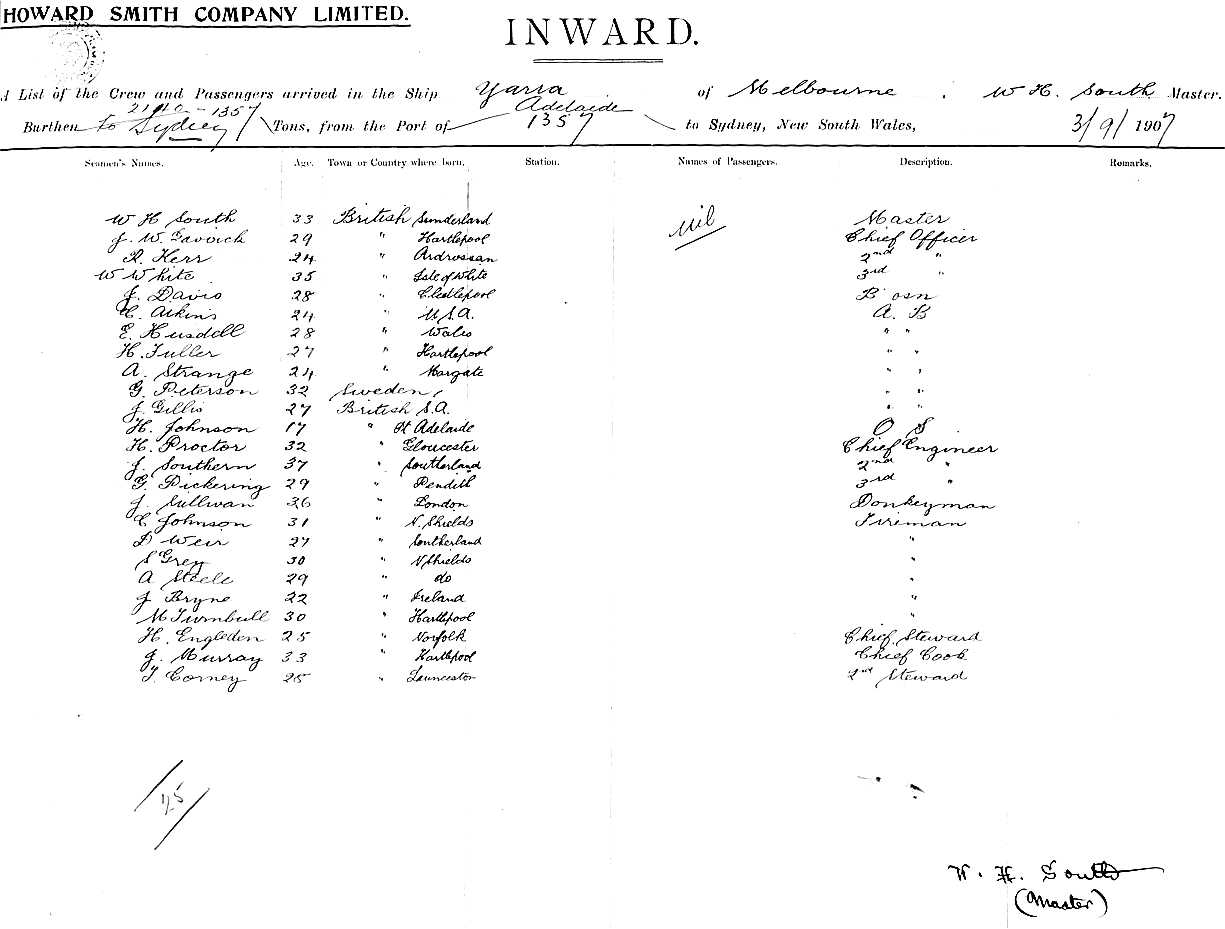 HOWARD SMITH COMPANY LIMITED.
INWARD.
A List of the Crew and Passengers arrived in the Ship Yarra of Melbourne, W H. South Master.
2140 - 1357 Adelaide
Burthen to Sydney Tons, from the Port of 1357 to Sydney, New South Wales, 3/9/1907
Seamen's Names. Age. Town or Country where born. Station. Names of Passengers. Description. Remarks.
W H South 33 British Sunderland nil Master
J. W. 29 " Hartlepool Chief Officer
R. Kerr 24 " Ardrossan 2nd "
W White 35 " Isle of White 3rd "
J. Davis 28 " B'osn
C. Atkins 24 " U.S.A. A. B
E. Husdell 28 " Wales " "
H. Fuller 27 " Hartlepool " "
A. Strange 24 " Margate " "
G. Peterson 32 Sweden " "
J. Gillis 27 British S.A. " "
H. Johnson 17 " Pt Adelaide O S
H. Proctor 32 " Gloucester Chief Engineer
J. Southern 37 " Southerland 2nd "
G. Pickering 29 " Pendith 3rd "
J. Sullivan 36 " London Donkeyman
C Johnson 31 " N. Shields Fireman
D Weir 27 " Southerland "
S Grey 30 " N Shields "
A Steele 29 " do "
J Bryne 22 " Ireland "
M Turnbull 30 " Hartlepool "
H. Engleden 25 " Norfolk Chief Steward
J. Murray 33 " Hartlepool Chief Cook
T. Corney 25 " Launceston 2nd Steward
25
W. H. South
(Master)